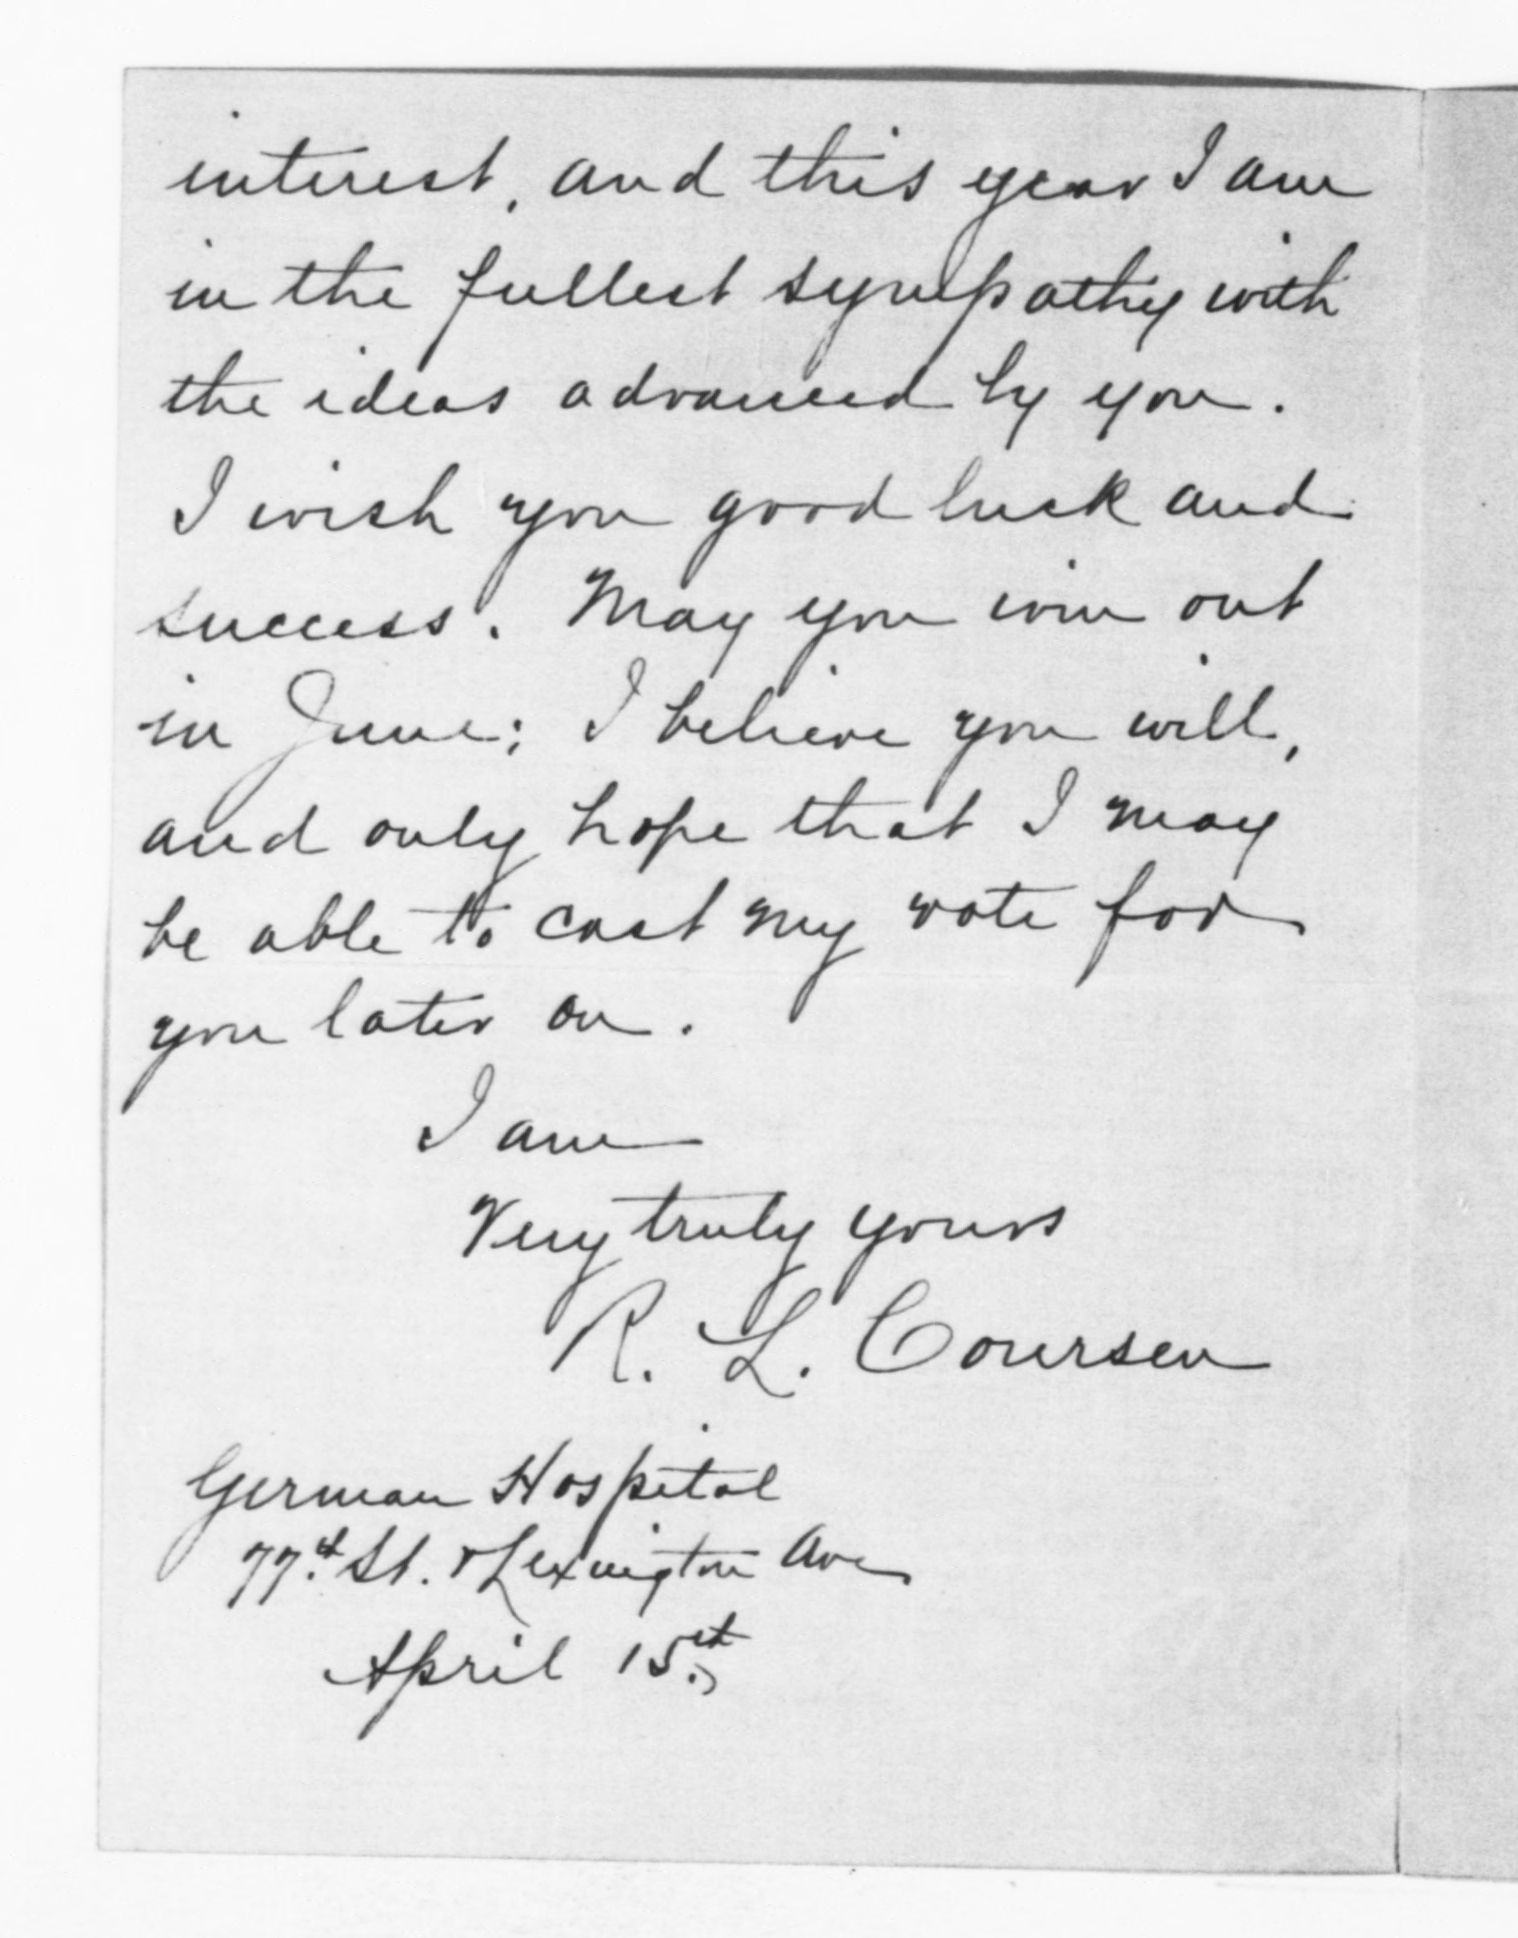 interest, and this year I am
in the fullest sympathy with
the ideas advanced by you.
I wish you good luck and
success. May you win out
in June; I believe you will,
and only hope that I may
be able to cast my vote for
you later on.
I am
Very truly yours
R. L. Coursen
German Hospital
77th St. & Lexington Ave
April 15th,